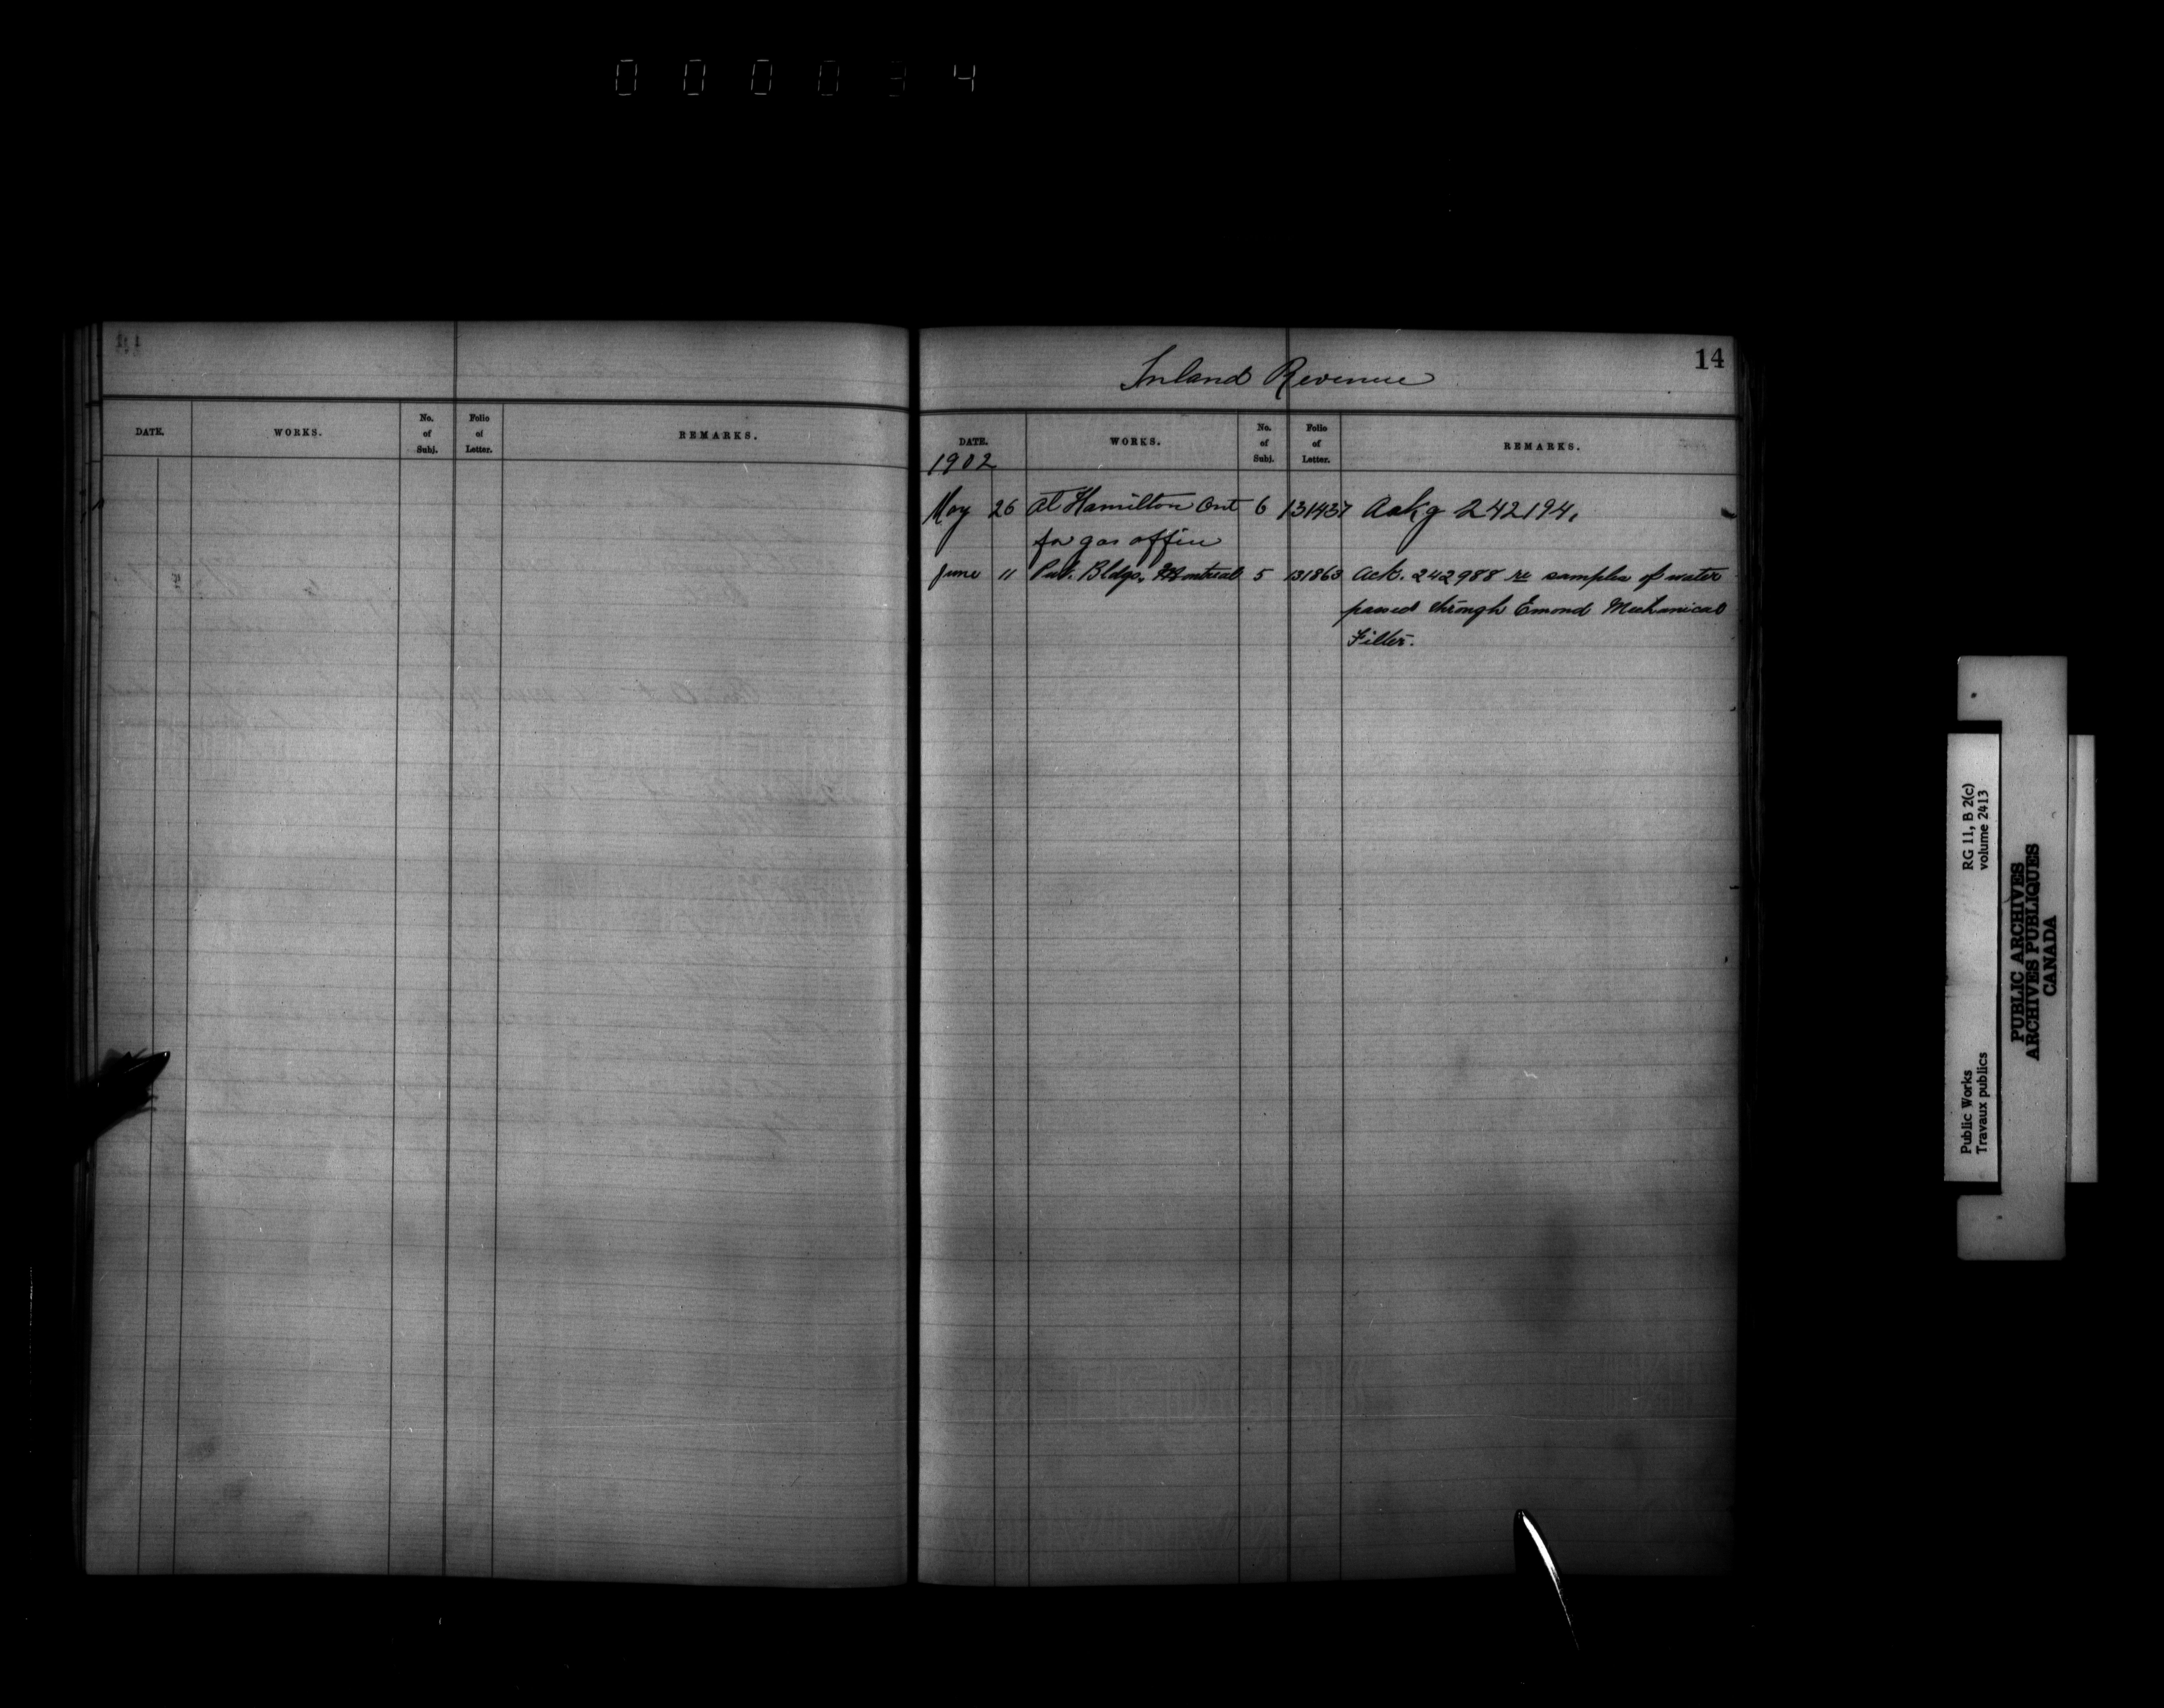 000034
DATE. WORKS. No. of Subj. Folio of Letter. REMARKS.
14
Inland Revenue
DATE. WORKS. No. of Subj. Folio of Letter. REMARKS.
1902
May 26 at Hamilton Ont 6 131437 Ackg 242194.
for gas office
June 11 Pub. Bldgs, Montreal 5 131863 Ack. 242988 re samples of water
passed through Emond Mechanical
Filter.
RG 11, B 2(c)
volume 2413
Public Works
Travaux publics
PUBLIC ARCHIVES
ARCHIVES PUBLIQUES
CANADA